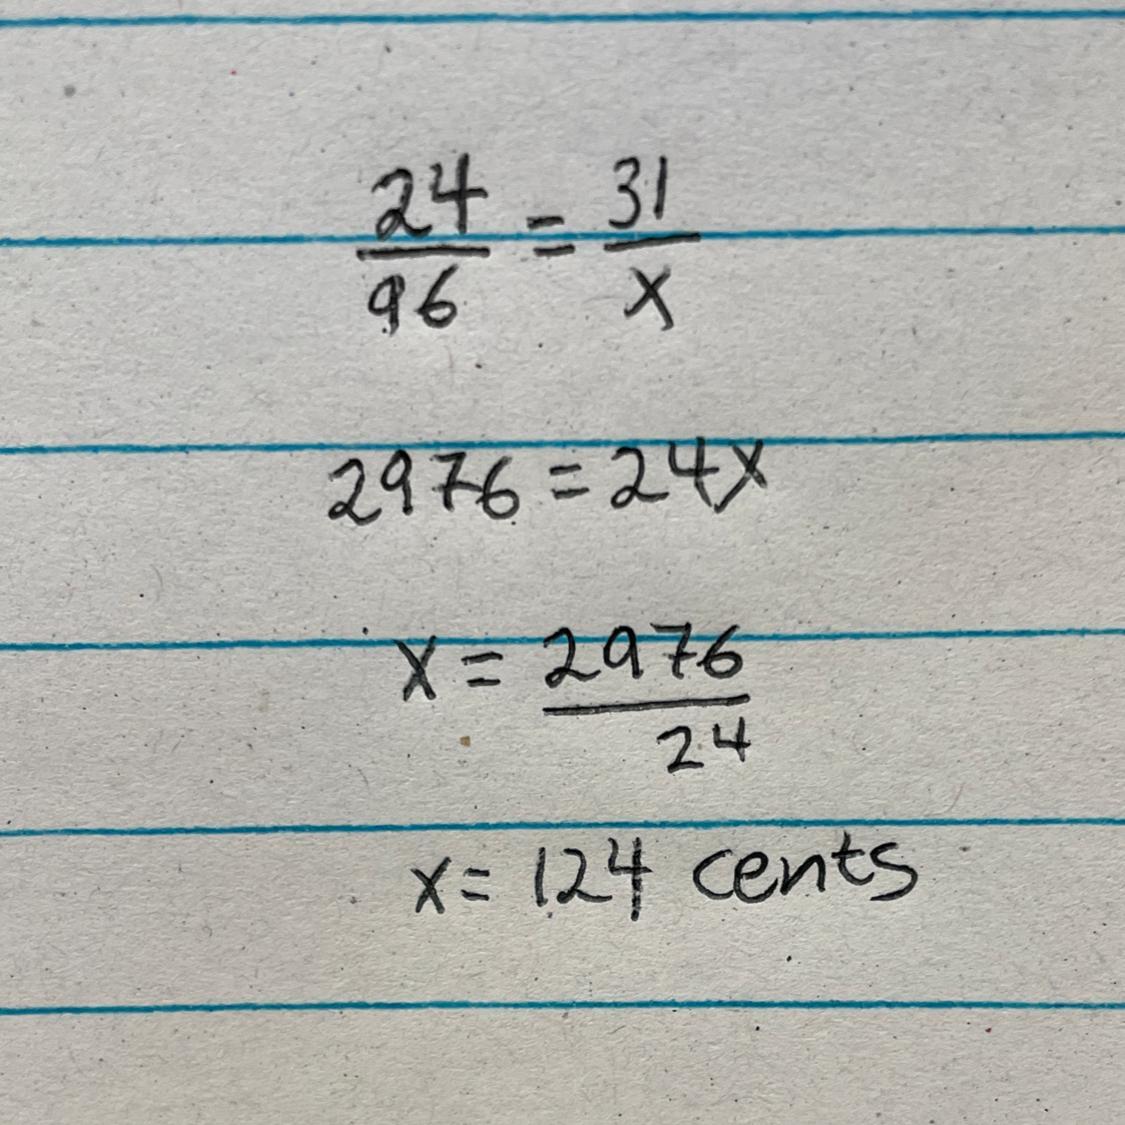 24/96 = 31/x
2976 = 24x
x = 2976/24
x = 124 cents